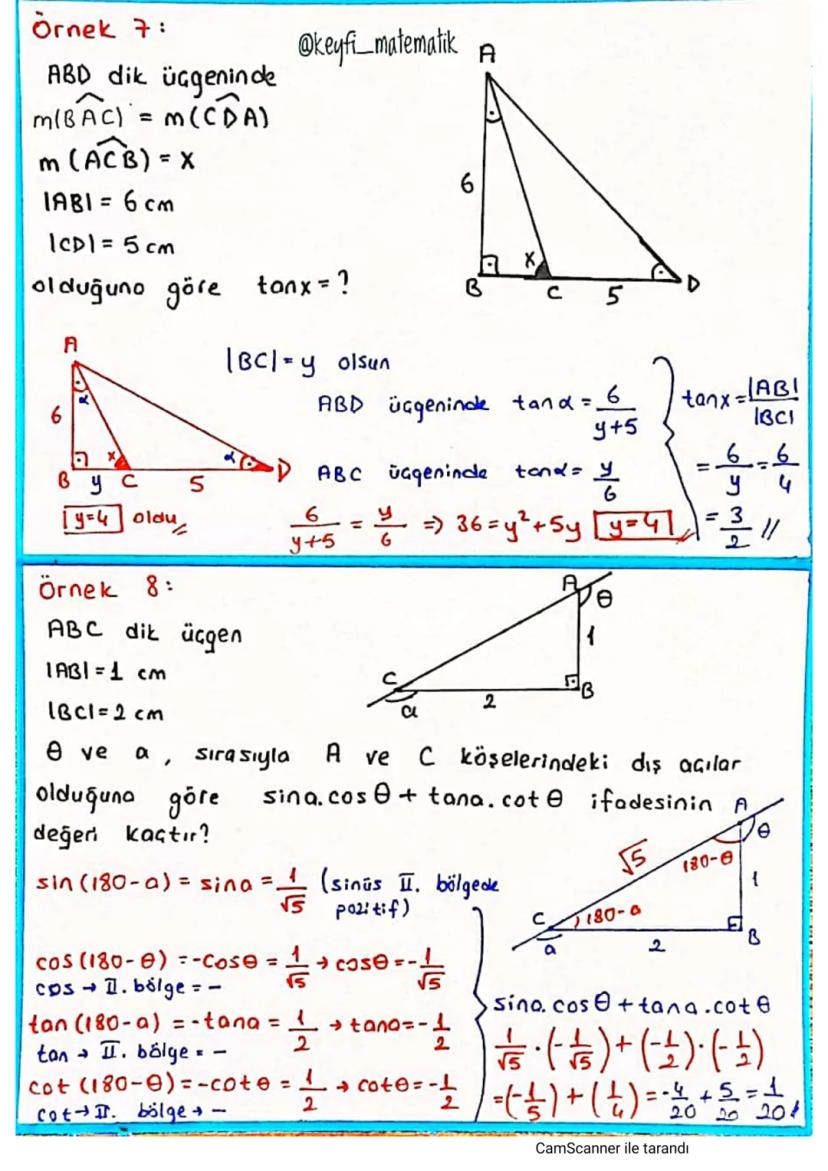 Örnek 7:
@keyfi_matematik
ABD dik üçgeninde
m(BAC) = m(CDA)
m(ACB) = x
|AB| = 6 cm
|CD| = 5 cm
olduğuna göre tanx = ?
A
6
x
B C 5 D
A
6
α
x
α
B y C 5 D
y=4 oldu
|BC| = y olsun
ABD üçgeninde tanα = 6/(y+5)
ABC üçgeninde tanα = y/6
6/(y+5) = y/6 ⇒ 36 = y²+5y y=4
tanx = |AB|/|BC|
= 6/y = 6/4
= 3/2 //
Örnek 8:
ABC dik üçgen
|AB| = 1 cm
|BC| = 2 cm
A
θ
1
C
a
2
B
θ ve a, sırasıyla A ve C köşelerindeki dış açılar
olduğuna göre sina.cosθ + tana.cotθ ifadesinin
değeri kaçtır?
A
θ
√5
180-θ
1
C
180-a
a
2
B
sin(180-a) = sina = 1/√5 (sinüs II. bölgede
pozitif)
cos(180-θ) = -cosθ = 1/√5 → cosθ = -1/√5
cos → II. bölge = -
tan(180-a) = -tana = 1/2 → tana = -1/2
tan → II. bölge = -
cot(180-θ) = -cotθ = 1/2 → cotθ = -1/2
cot → II. bölge → -
sina.cosθ + tana.cotθ
1/√5 . (-1/√5) + (-1/2) . (-1/2)
= (-1/5) + (1/4) = -4/20 + 5/20 = 1/20 //
CamScanner ile tarandı